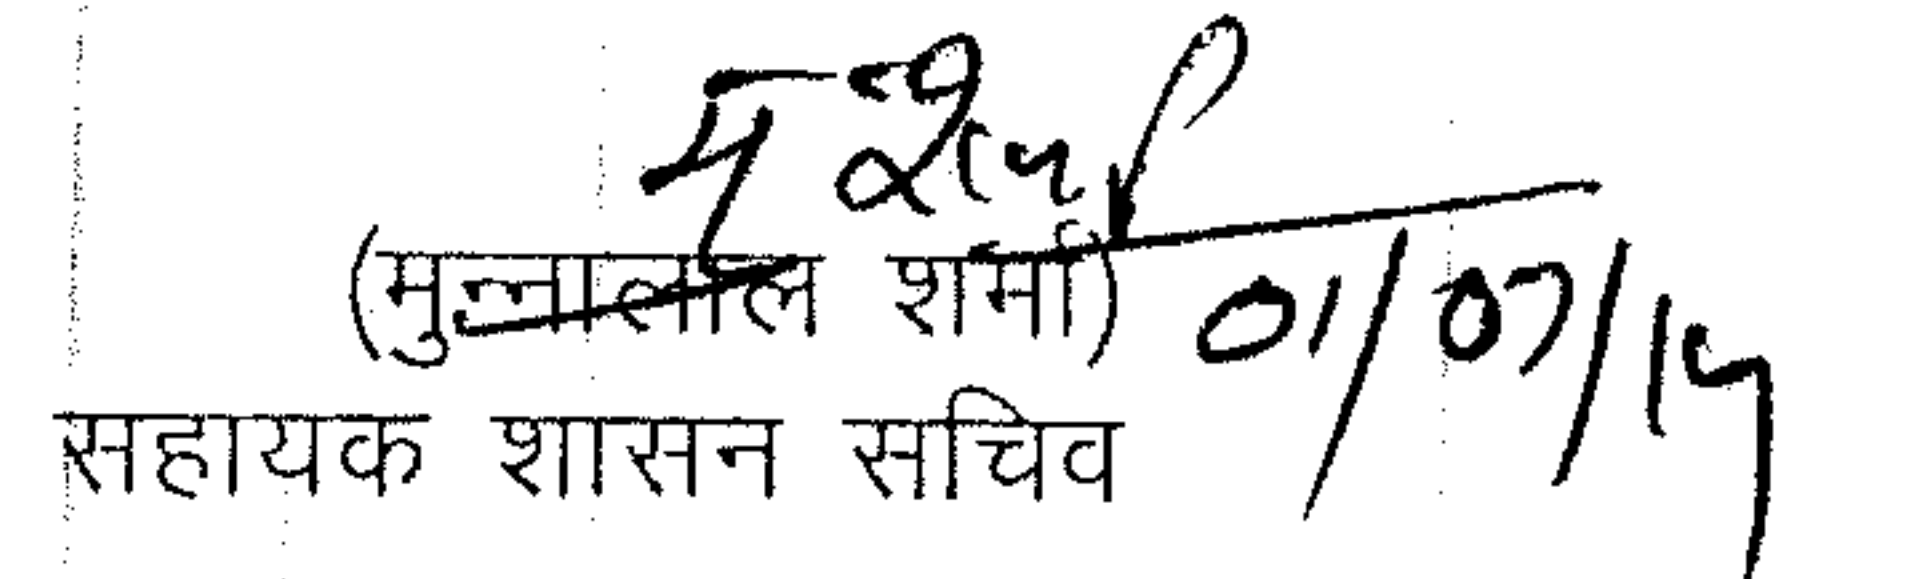 (मुन्नालाल शर्मा) 01/07/14
सहायक शासन सचिव